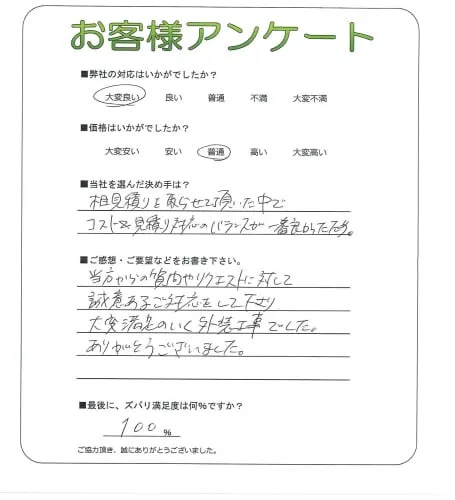 お客様アンケート
■弊社の対応はいかがでしたか?
大変良い 良い 普通 不満 大変不満
■価格はいかがでしたか?
大変安い 安い 普通 高い 大変高い
■当社を選んだ決め手は?
相見積りを取らせて頂いた中で
コスト&見積り対応のバランスが一番良かった為。
■ご感想・ご要望などをお書き下さい。
当方からの質問やリクエストに対して
誠意あるご対応をして下さり
大変満足のいく外装工事でした。
ありがとうございました。
■最後に、ズバリ満足度は何%ですか?
100 %
ご協力頂き、誠にありがとうございました。